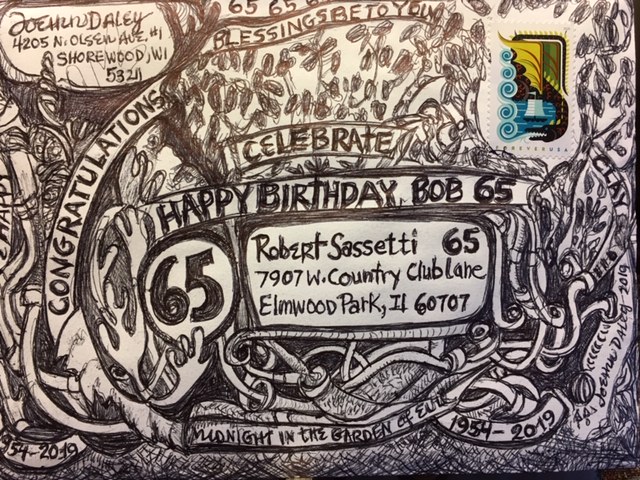 JOEHUN DALEY
4205 N. OLSEN AVE. #1
SHOREWOOD, WI
53211
65 65 65 65
BLESSINGS BE TO YOU
CONGRATULATIONS
CELEBRATE
HAPPY BIRTHDAY, BOB 65
65
Robert Sassetti 65
7907 W. Country Club Lane
Elmwood Park, Il 60707
MIDNIGHT IN THE GARDEN OF EVIL
1954-2019
954-2019
HAPPY
FOREVER USA
DALEY 2019